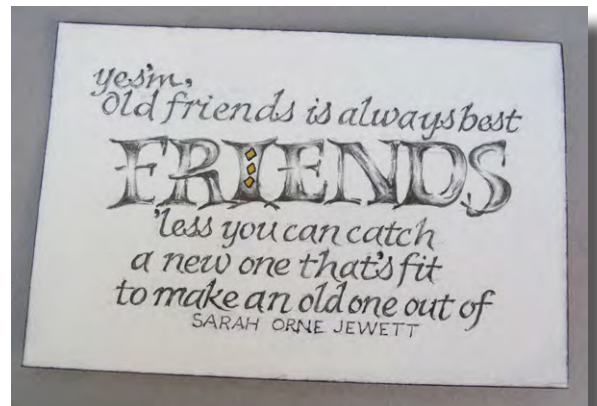 yes'm,
Old friends is always best
FRIENDS
'less you can catch
a new one that's fit
to make an old one out of
SARAH ORNE JEWETT